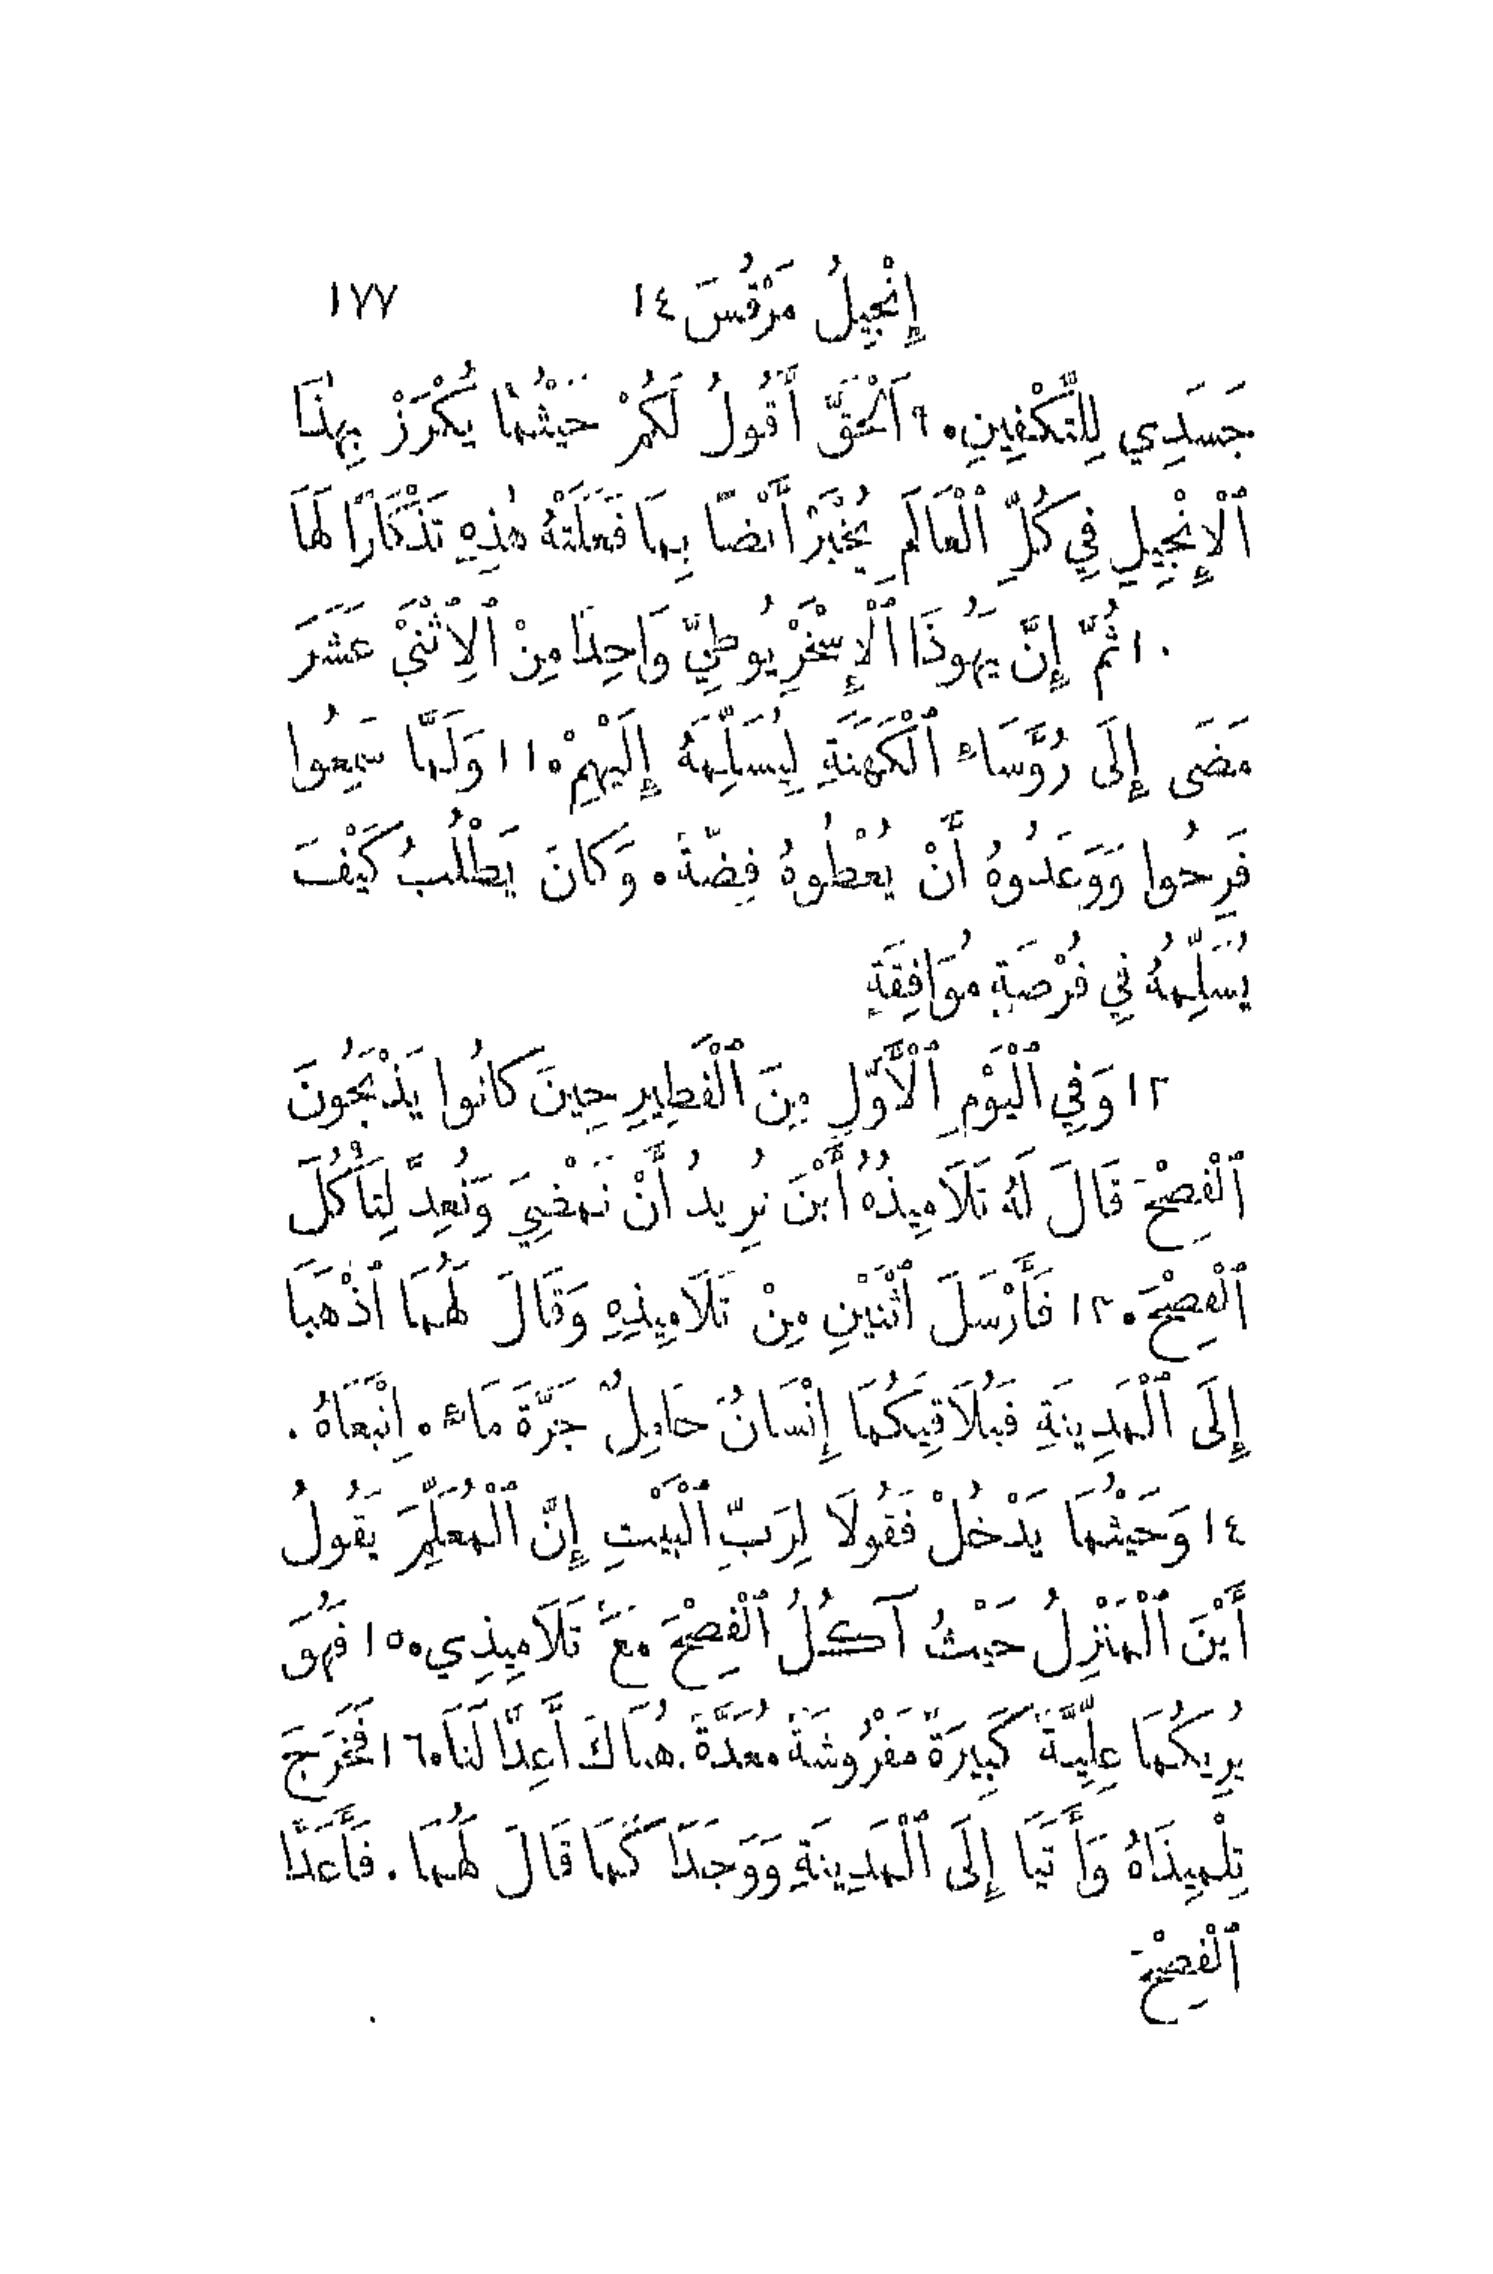 إِنْجِيلُ مَرْقُسَ ١٤ ١٧٧
جَسَدِي لِلتَّكْفِينِ. ٩ اَلْحَقَّ أَقُولُ لَكُمْ حَيْثُمَا يُكْرَزْ بِهٰذَا
ٱلْإِنْجِيلِ فِي كُلِّ ٱلْعَالَمِ يُخْبَرْ أَيْضًا بِمَا فَعَلَتْهُ هٰذِهِ تَذْكَارًا لَهَا
١٠ ثُمَّ إِنَّ يَهُوذَا ٱلْإِسْخَرْيُوطِيَّ وَاحِدًا مِنْ ٱلِٱثْنَيْ عَشَرَ
مَضَى إِلَى رُؤَسَاءِ ٱلْكَهَنَةِ لِيُسَلِّمَهُ إِلَيْهِمْ. ١١ وَلَمَّا سَمِعُوا
فَرِحُوا وَوَعَدُوهُ أَنْ يُعْطُوهُ فِضَّةً. وَكَانَ يَطْلُبُ كَيْفَ
يُسَلِّمُهُ فِي فُرْصَةٍ مُوَافِقَةٍ
١٢ وَفِي ٱلْيَوْمِ ٱلْأَوَّلِ مِنَ ٱلْفَطِيرِ حِينَ كَانُوا يَذْبَحُونَ
ٱلْفِصْحَ قَالَ لَهُ تَلَامِيذُهُ أَيْنَ تُرِيدُ أَنْ نَمْضِيَ وَنُعِدَّ لِتَأْكُلَ
ٱلْفِصْحَ. ١٣ فَأَرْسَلَ ٱثْنَيْنِ مِنْ تَلَامِيذِهِ وَقَالَ لَهُمَا ٱذْهَبَا
إِلَى ٱلْمَدِينَةِ فَيُلَاقِيَكُمَا إِنْسَانٌ حَامِلٌ جَرَّةَ مَاءٍ. اِتْبَعَاهُ.
١٤ وَحَيْثُمَا يَدْخُلْ فَقُولَا لِرَبِّ ٱلْبَيْتِ إِنَّ ٱلْمُعَلِّمَ يَقُولُ
أَيْنَ ٱلْمَنْزِلُ حَيْثُ آكُلُ ٱلْفِصْحَ مَعَ تَلَامِيذِي. ١٥ فَهُوَ
يُرِيكُمَا عِلِّيَّةً كَبِيرَةً مَفْرُوشَةً مُعَدَّةً. هُنَاكَ أَعِدَّا لَنَا. ١٦ فَخَرَجَ
تِلْمِيذَاهُ وَأَتَيَا إِلَى ٱلْمَدِينَةِ وَوَجَدَا كَمَا قَالَ لَهُمَا. فَأَعَدَّا
ٱلْفِصْحَ